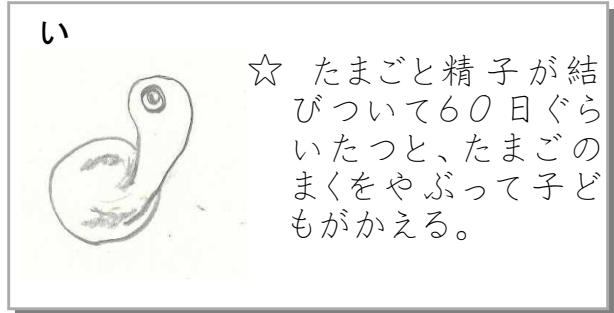 い
☆ たまごと精子が結
びついて60日ぐら
いたつと、たまごの
まくをやぶって子ど
もがかえる。